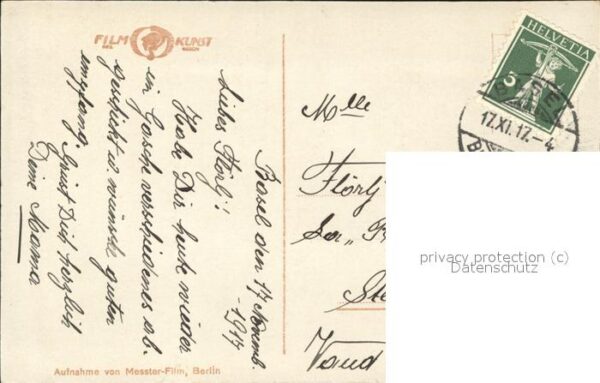 FILM KUNST
Basel den 17. Novemb.
-1917
Liebes Flörlj!
Habe Dir heute wieder
ein Gosch verschiedenes ab-
geschickt u. wünsche guten
empfang. Grüst Dich herzlich
Deine Mama
Aufnahme von Messter-Film, Berlin
HELVETIA
5
17.XI.17.-4
Mlle
Flörlj
Vaud
privacy protection (c)
Datenschutz